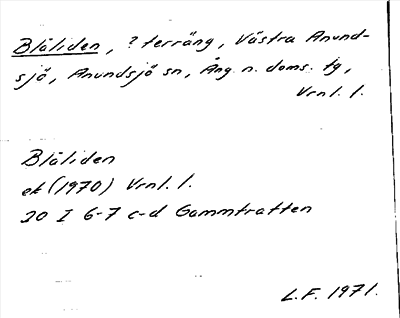 Blåliden, ? terräng, Västra Anund-
sjö, Anundsjö sn, Ång. n. doms. tg,
Vrnl. l.
Blåliden
ek (1970) Vrnl. l.
20 I 6-7 c-d Gammtratten
L.F. 1971.